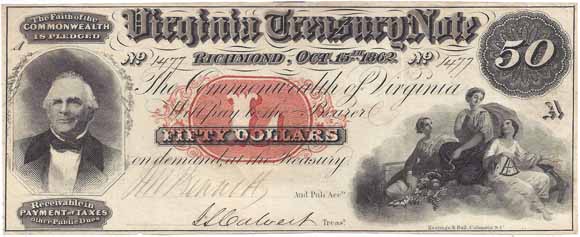 The Faith of the
COMMONWEALTH
IS PLEDGED
Virginia Treasury Note
50
A
No 1477 RICHMOND, OCT. 15TH 1862. No 1477
The Commonwealth of Virginia
Will pay to the Bearer
L
FIFTY DOLLARS
on demand, at the Treasury
A
And Pub Accts
J S Calvert Treasr.
Receivable in
PAYMENT of TAXES
other Public Dues
Keatinge & Ball, Columbia, S.C.